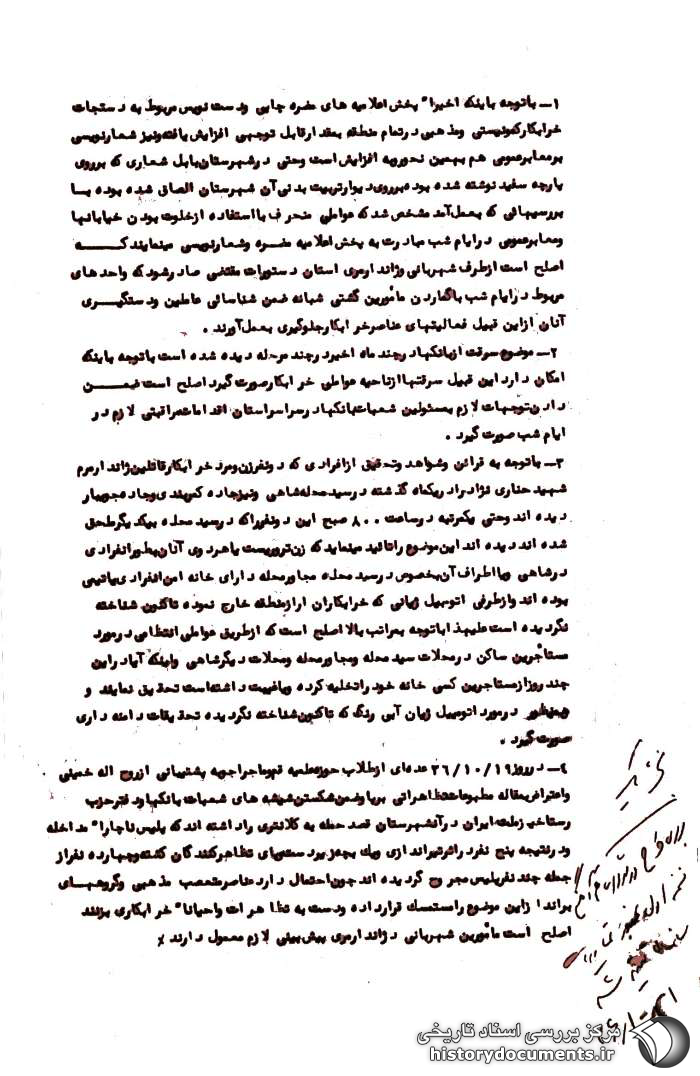 ۱ــ باتوجه باینکه اخیرا" پخش اعلامیه های مضره چاپی ودست نویس مربوط به دستجات
خرابکارکمونیستی ومذهبی درتمام منطقه بمقدارقابل توجهی افزایش یافته ونیز شعارنویسی
برمعابرعمومی هم بهمین نحوروبه افزایش است وحتی درشهرستان بابل شعاری که برروی
پارچه سفید نوشته شده بوده برروی دیوارتربیت بدنی آن شهرستان الصاق شده بوده بــا
بررسیهائی که بعمل آمد مشخص شدکه عواملی منحرف بااستفاده ازخلوت بودن خیابانها
ومعابرعمومی درایام شب مبادرت به پخش اعلامیه مضـره وشعارنویسی مینمایندکــــه
اصلح است ازطرف شهربانی وژاندارمری استان دستورات مقتضی صادرشودکه واحدهای
مربوط درایام شب باگماردن مأمورین گشتی شبانه ضمن شناسائی عاملین ودستگیــری
آنان ازاین قبیل فعالیتهای عناصرخرابکارجلوگیری بعمل آورند .
۲ــ موضوع سرقت ازبانکهادرچند ماه اخیردرچند مرحله دیده شده است باتوجه باینکه
امکان دارد این قبیل سرقتهاازناحیه عواملی خرابکارصورت گیرد اصلح است ضمــــن
دادن توجهات لازم بمسئولین شعبات بانکهادرسراسراستان اقدامات مراقبتی لازم در
ایام شب صورت گیرد .
۳ــ باتوجه به قرائن وشواهد وتحقیق ازافرادی که دونفرزن ومرد خرابکارقاتلین ژاندارمرم
شهید حناری نژادرادریکماه گذشته درسیدمحله شاهی ونیزجاده کمربندی وجاده جویبار
دیده اند وحتی یکمرتبه درساعت ۸۰۰ صبح این دونفرراکه درسید محله بیکدیگرملحق
شده انددیده اند این موضوع راتائید مینماید که زن تروریست یاهردوی آنان بطورانفرادی
درشاهی ویااطراف آن بخصوص درسید محله مجاورمحله دارای خانه امن انفرادی یاتیمی
بوده اند وازطرفی اتومبیل ژیانی که خرابکاران ازمنطقه خارج نموده تاکنون شناخته
نگردیده است علیهذاباتوجه بمراتب بالااصلح است که ازطریق عواملی انتظامی درمورد
مستأجرین ساکن درمحلات سیدمحله ومجاورمحله ومحلات دیگرشاهی واینکه آیادراین
چند روزازمستاجرین کسی خانه خودراتخلیه کرده ویاغیبت داشته است تحقیق نمایند و
همینطور درمورد اتومبیل ژیان آبی رنگ که تاکنون شناخته نگردیده تحقیقات دامنه داری
صورت گیرد .
۴ــ درروز ۳۶/۱۰/۱۹ عده ای ازطلاب حوزه علمیه قم وماجراجو به پشتیبانی ازروح اله خمینی
واعتراض بمقاله مطبوعات تظاهراتی برپا وضمن شکستن شیشه های شعبات بانکها ودفترحزب
رستاخیزملت ایران درآنشهرستان قصد حمله به کلانتری راداشته اند که پلیس ناچارا" مداخله
ودرنتیجه پنج نفرد راثرتیراندازی ویک بچه زیردست وپای تظاهرکنندگان کشته وچهارده نفراز
جمله چند نفرپلیس مجروح گردیده اند چون احتمال دارد عناصرمتعصب مذهبی وگروههـای
برانداز این موضوع رامستمسک قرارداده ودست به تظاهرات واحیانا" خرابکاری بزنند
اصلح است مأمورین شهربانی وژاندارمری پیش بینی لازم معمول دارند ٪
مرکز بررسی اسناد تاریخی
historydocuments.ir